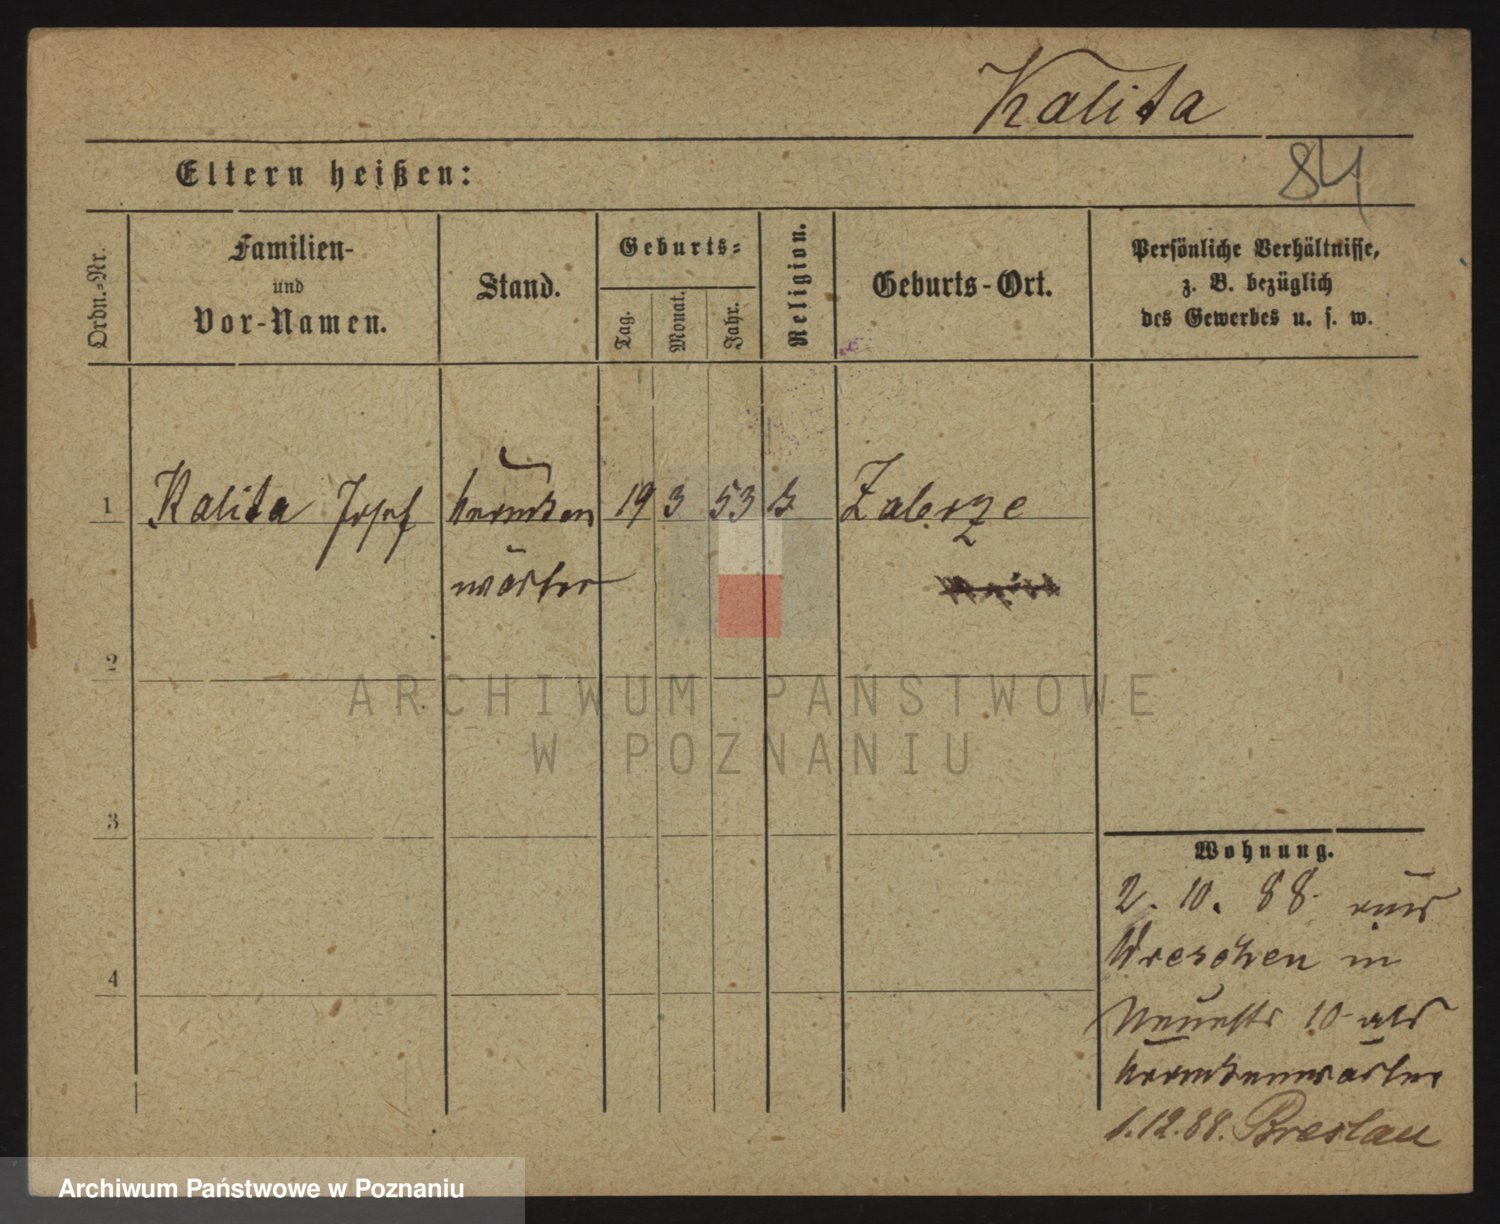 Kalita
84
Eltern heißen:
Ordn.-Nr.
Familien-
und
Vor-Namen.
Stand.
Geburts-
Tag.
Monat.
Jahr.
Religion.
Geburts-Ort.
Persönliche Verhältnisse,
z. B. bezüglich
des Gewerbes u. s. w.
1 Kalita Josef Kranken 19 3 53 k. Zabrze
wärter
2
3
4
Wohnung.
2. 10. 88. aus
Wreschen in
10 als
Krankenwärter
1.12.88. Breslau
ARCHIWUM PAŃSTWOWE
W POZNANIU
Archiwum Państwowe w Poznaniu